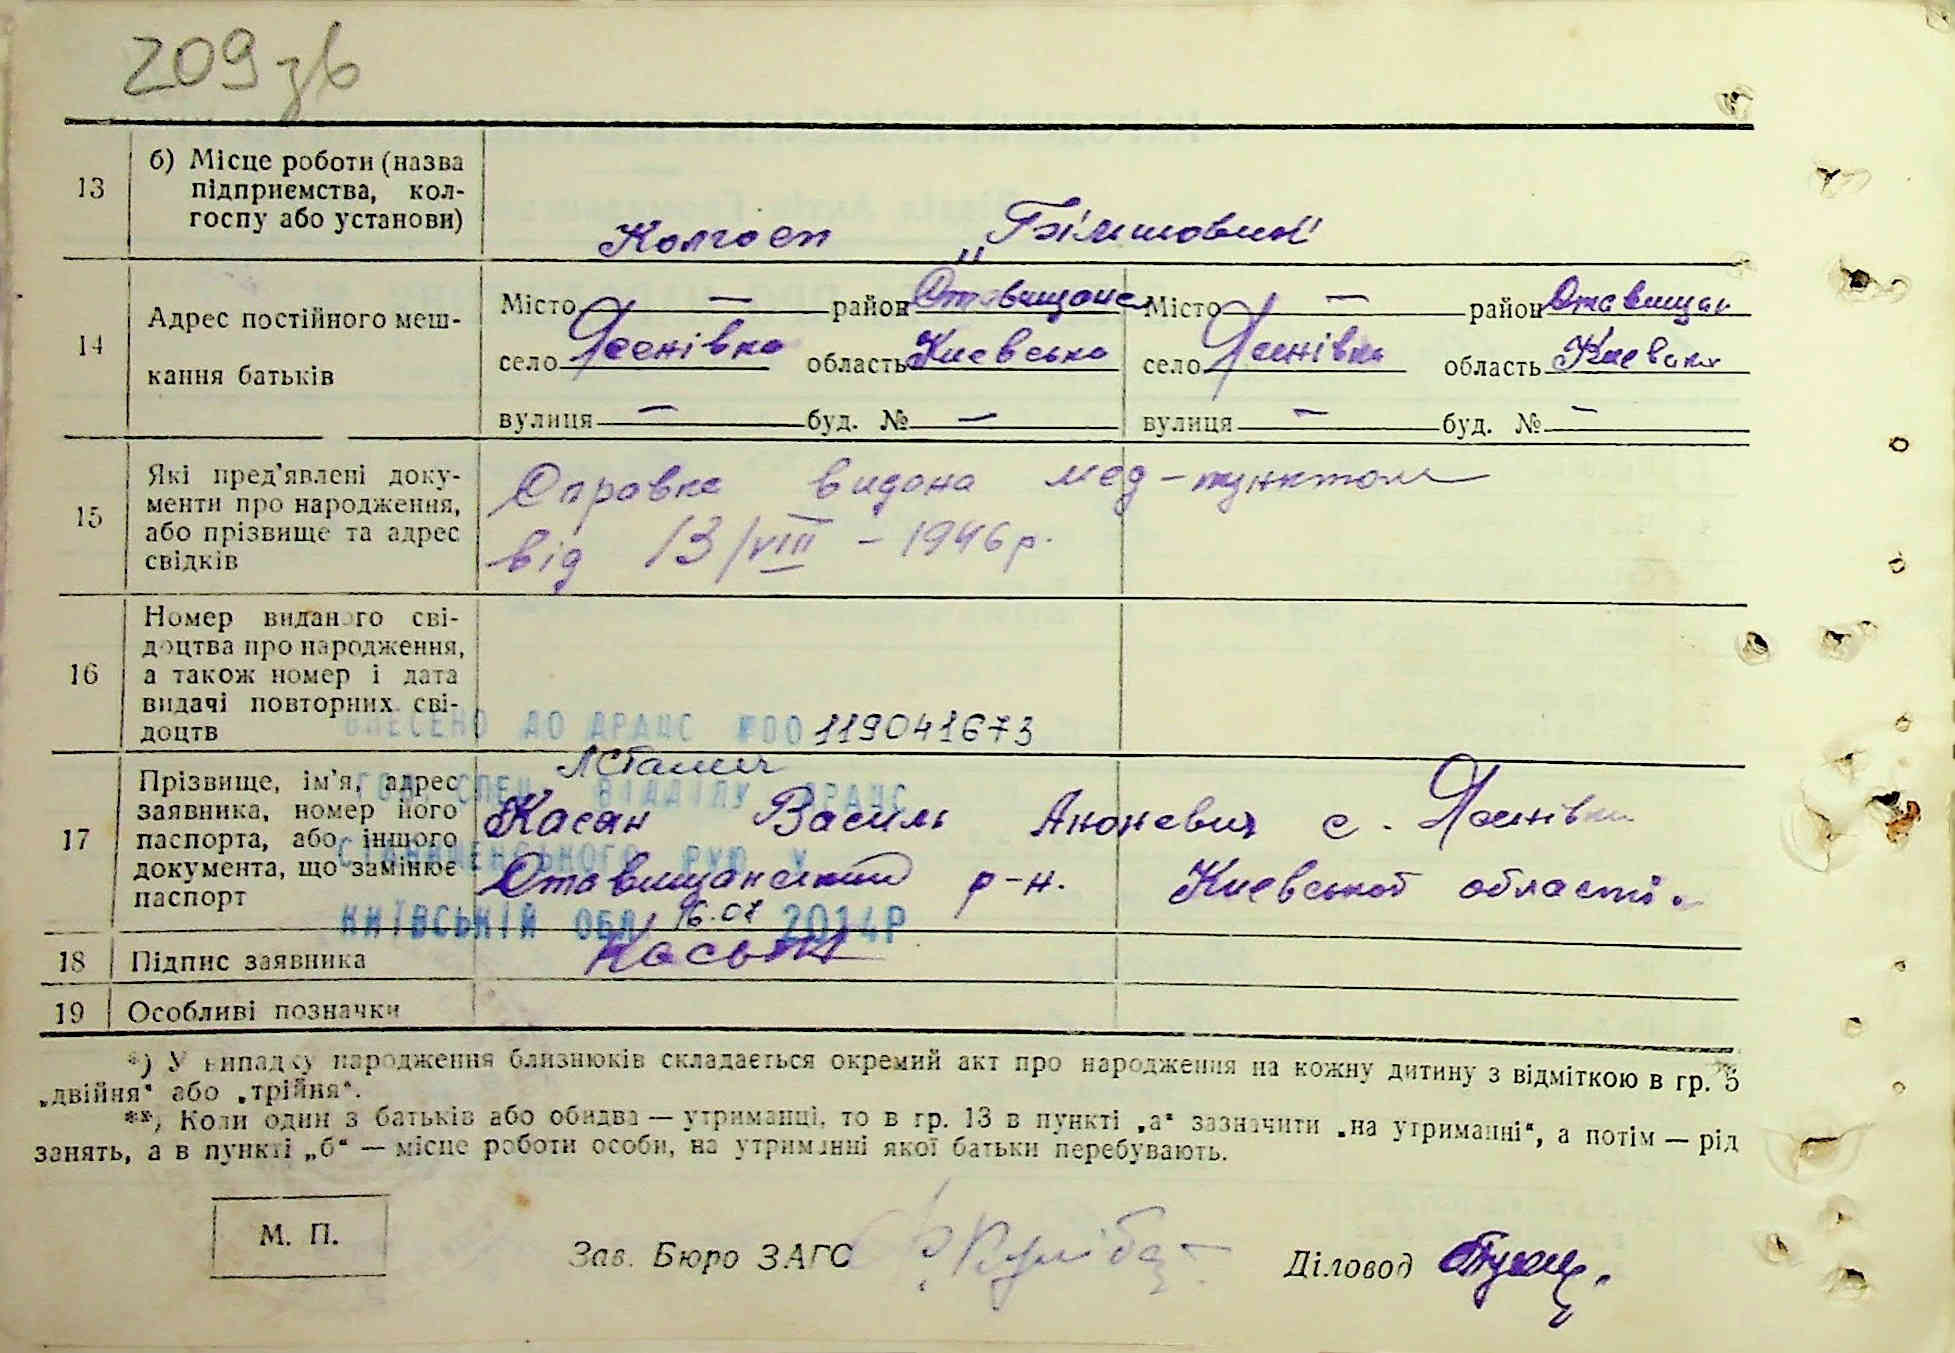 209 зв
13
б) Місце роботи (назва
підприємства, кол-
госпу або установи)
Колгосп „Більшовик"
14
Адрес постійного меш-
кання батьків
Місто — район Ставищан Місто — район Ставищан
село Ясенівка область Киевська село Ясенівка область Киевська
вулиця — буд. № — вулиця — буд. № —
15
Які пред'явлені доку-
менти про народження,
або прізвище та адрес
свідків
Справка видана мед-пунктом
від 13/VIII – 1946 р.
16
Номер виданого сві-
доцтва про народження,
а також номер і дата
видачі повторних сві-
доцтв
ВНЕСЕНО ДО ДРАЦС №00119041673
17
Прізвище, ім'я, адрес
заявника, номер його
паспорта, або іншого
документа, що замінює
паспорт
ГОЛ. СПЕЦ. ВІДДІЛУ ДРАЦС
Касян Василь с. Ясенівка
СТАВИЩЕНСЬКОГО РУЮ У
Ставищанський р-н. Киевської області.
КИЇВСЬКІЙ ОБЛ 16.07 2014Р
18
Підпис заявника
Касьян
19
Особливі позначки
*) У випадку народження близнюків складається окремий акт про народження на кожну дитину з відміткою в гр. 5
„двійня" або „трійня".
**) Коли один з батьків або обидва — утриманці, то в гр. 13 в пункті „а" зазначити „на утриманні", а потім — рід
занять, а в пункті „б" — місце роботи особи, на утриманні якої батьки перебувають.
М. П.
Зав. Бюро ЗАГС
Діловод